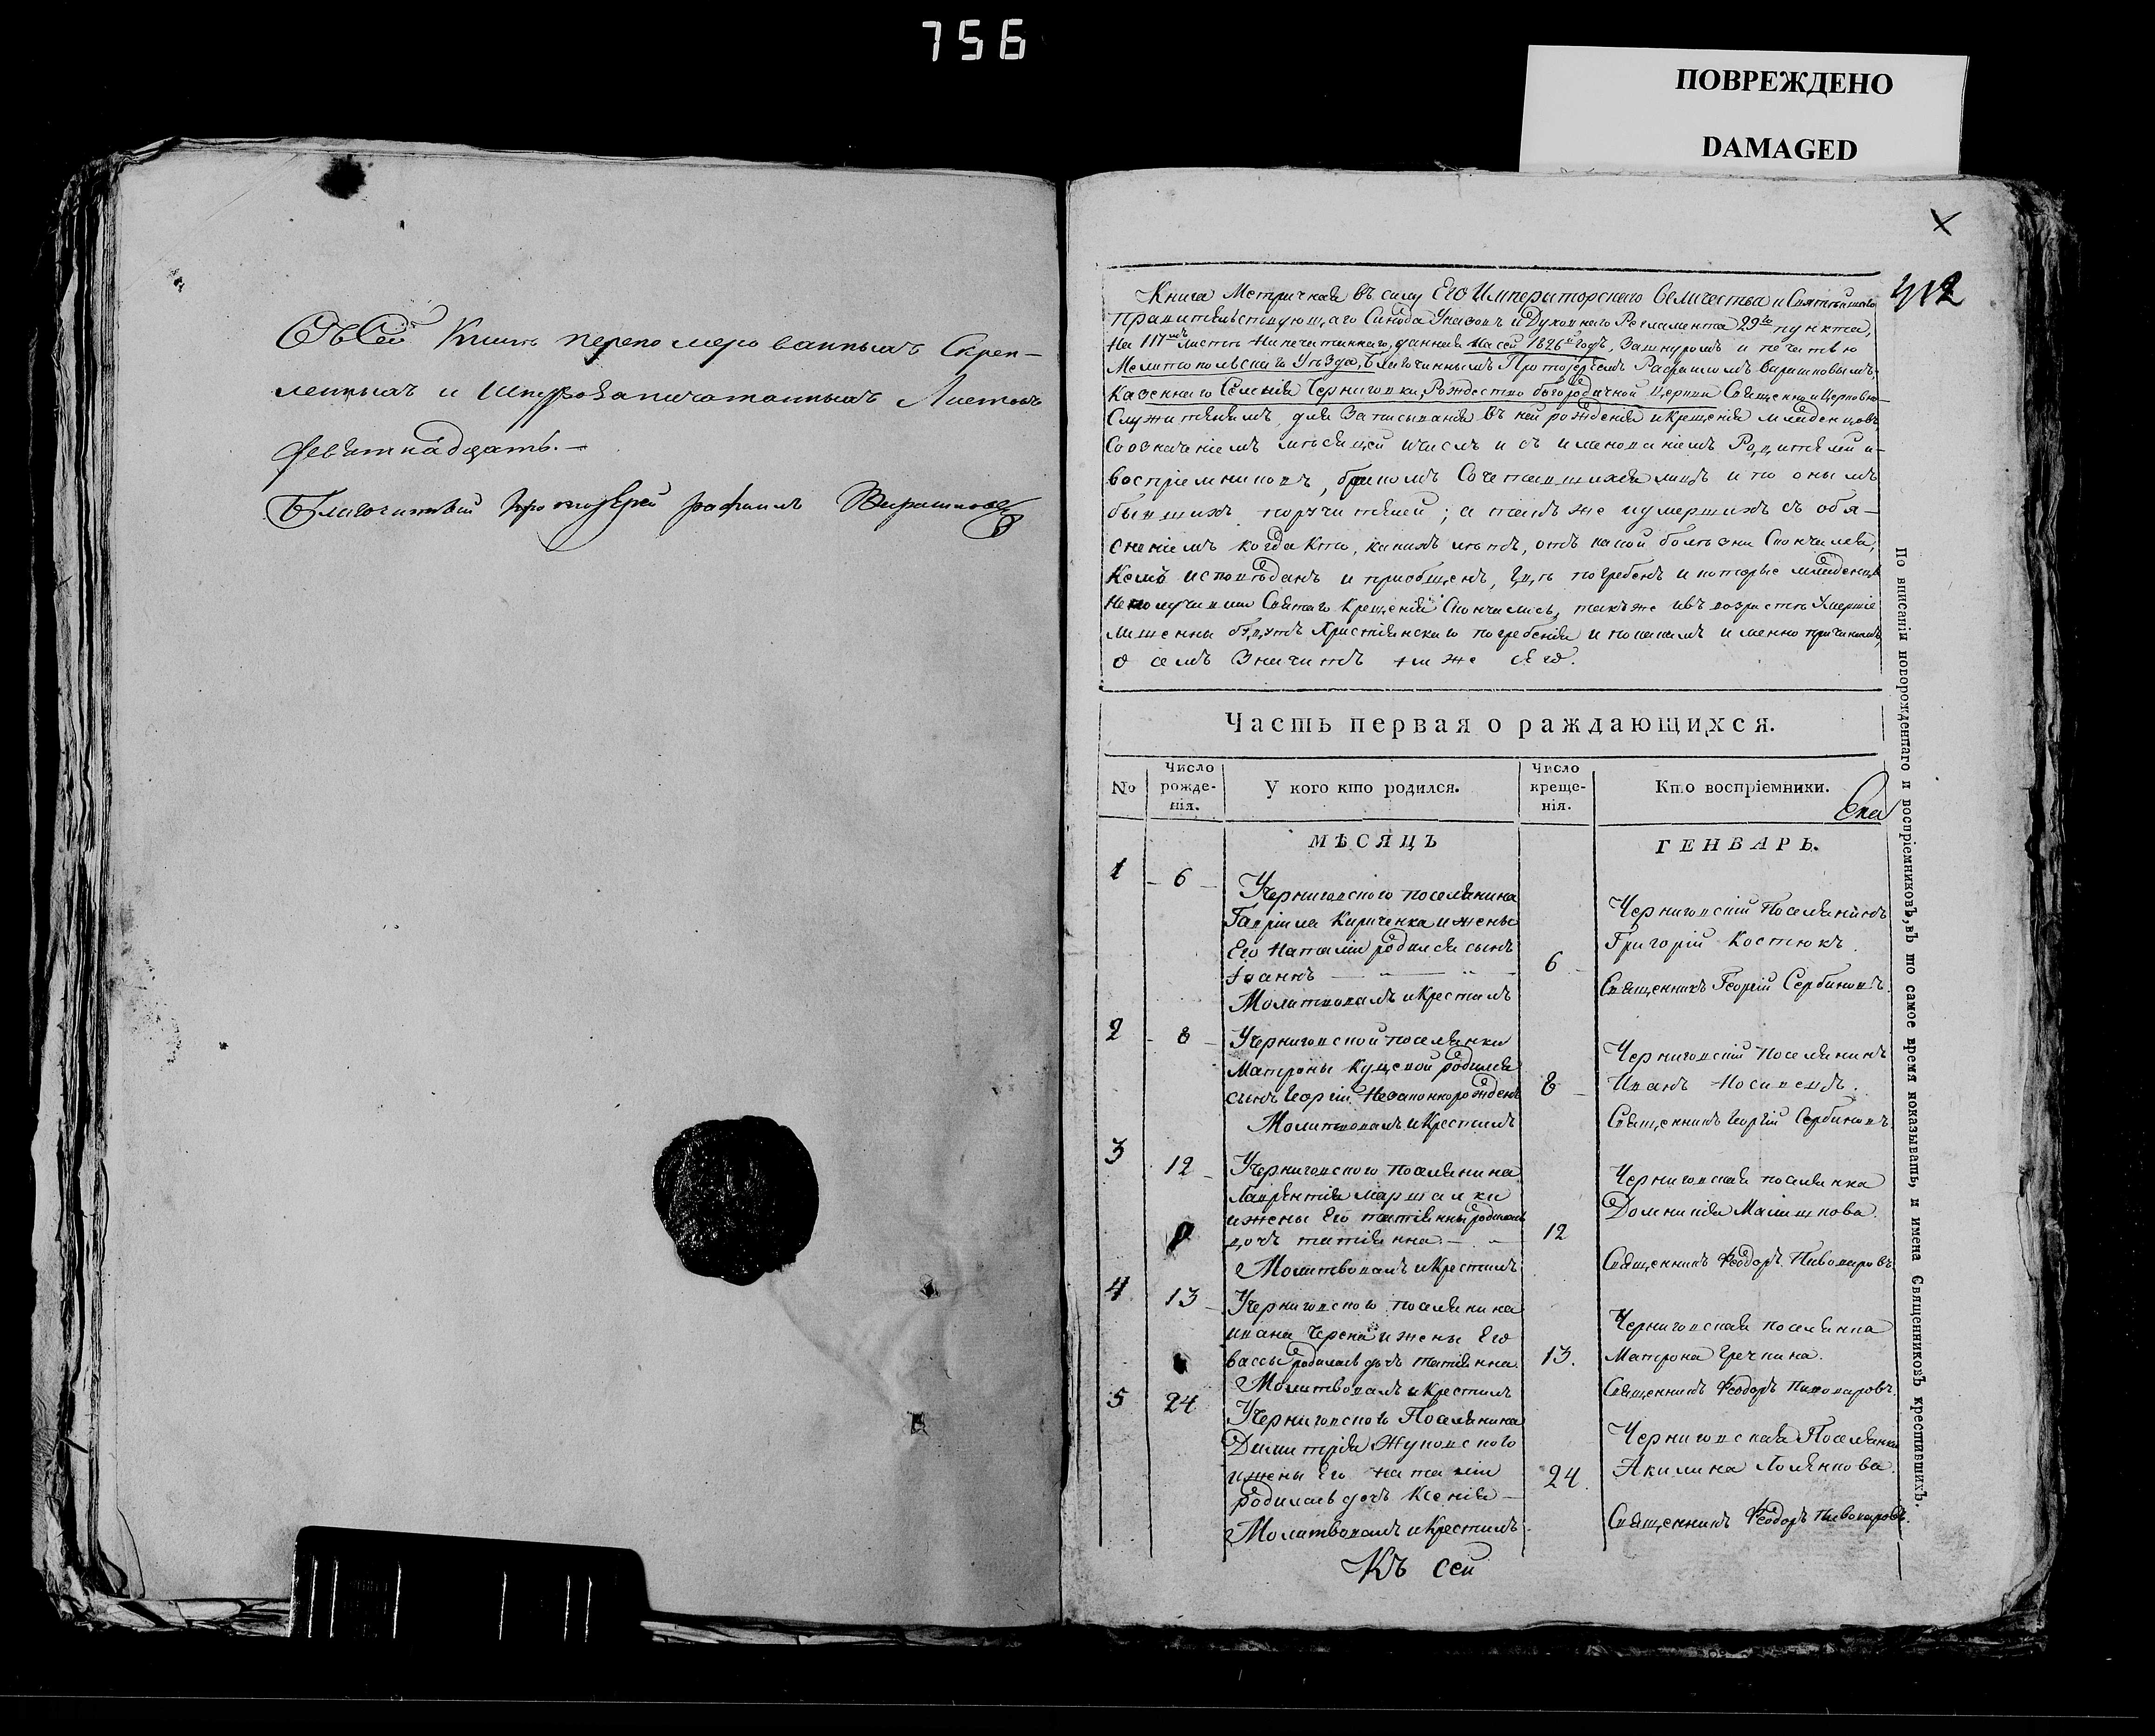 756
ПОВРЕЖДЕНО
DAMAGED
Въ Сей Книгѣ перенумерованныхъ Скреп-
ленныхъ и Шнурозапечатанныхъ Листовъ
девятнадцать.—
Благочинный Протоіерей Рафаилъ
412
Книга Метричная въ силу Его Императорскаго Величества и Святѣйшаго
Правительствующаго Синода Указовъ и Духовнаго Регламента 29го пункта,
на листѣ напечатаннаго, данная на сей 1826й годъ, за шнуромъ и печатью
Мелитопольскаго Уѣзда, Благочиннымъ Протоіереемъ Рафаиломъ
Казеннаго Селенія Черниговки, Рождество богородичной Церкви Священно и Церковно-
Служителямъ, для Записыванія въ ней рожденія и крещенія младенцовъ
Со означеніемъ мѣсяцей и числъ и съ именованіемъ Родителей и
воспріемниковъ, бракомъ Сочетавшихся лицъ и по онымъ
бывшихъ поручителей; а такъ же и умершихъ съ объя-
сненіемъ когда кто, какихъ лѣтъ, отъ какой болѣзни Скончался,
Кемъ исповѣданъ и пріобщенъ, гдѣ погребенъ и которые младенцы
не получивши Святаго Крещенія Скончались, такъ же и въ возрастѣ Умершіе
лишенны будутъ Христіянскаго погребенія и по какимъ именно причинамъ,
о семъ Значитъ ниже сего.
Часть первая о раждающихся.
No
Число рожде- нія.
У кого кто родился.
Число креще- нія.
Кто воспріемники.
МѢСЯЦЪ
ГЕНВАРЬ.
1
6
У Черниговского поселянина
Гавріила Кириченка и жены
Его Наталіи родился сынъ
Іоаннъ
Молитвовалъ и Крестилъ
6
Черниговскій Поселянинъ
Григорій Костюкъ
Священникъ Георгій Сербиновъ
2
8
У Черниговской поселянки
Матроны Куцевой родился
сынъ Георгій Незаконнорожденъ
Молитвовалъ и Крестилъ
8
Черниговскій Поселянинъ
Иванъ
Священникъ Георгій Сербиновъ
3
12
У Черниговского поселянина
Лаврентія Маршалки
и жены Его Татіянны родилась
дочь Татіянна
Молитвовалъ и Крестилъ
12
Черниговская поселянка
Домникія
Священникъ Феодоръ Пивоваровъ
4
13
У Черниговского поселянина
ивана Черепа и жены Его
Вассы родилась дочь Татіянна
Молитвовалъ и Крестилъ
13.
Черниговская поселянка
Матрона Гречкина.
Священникъ Феодоръ Пивоваровъ
5
24
У Черниговского Поселянина
Димитрія Жуковского
и жены Его Наталіи
родилась дочь Ксенія
Молитвовалъ и Крестилъ
24.
Черниговская Поселянка
Акилина
Священникъ Феодоръ Пивоваровъ.
Къ сей
По вписаніи новорожденнаго и воспріемниковъ, въ то самое время показывать, и имена Священниковъ крестившихъ.